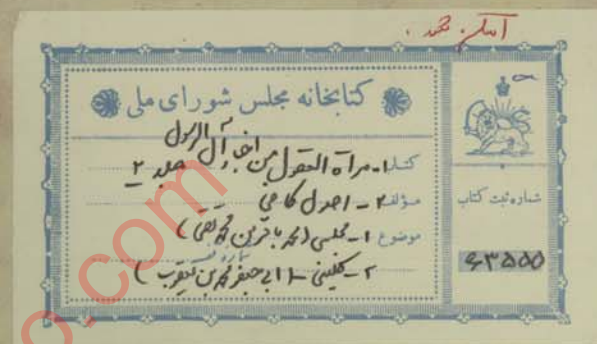 اسکن شد .
کتابخانه مجلس شورای ملی
کتاب ۱- مرآة العقول من اخبار آل الرسول جلد ۲
مؤلف ۲- اصول کافی
موضوع ۱- مجلسی (محمد باقر بن محمد تقی)
۲- کلینی - (ابی جعفر محمد بن یعقوب)
شماره ثبت کتاب
۶۳۵۵۵
o.com